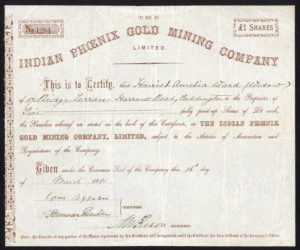 THE
INDIAN PHŒNIX GOLD MINING COMPANY
LIMITED.
No. 1284
£1 SHARES
This is to Certify, that Harriet Amelia Ward (Widow)
of Terrace Harrow Road, Paddington is the Proprietor of
Five fully paid-up Shares of £1 each
the Numbers whereof are stated on the back of this Certificate, in THE INDIAN PHŒNIX
GOLD MINING COMPANY, LIMITED, subject to the Articles of Association and
Regulations of the Company.
Given under the Common Seal of the Company this 16th day
of March 1881
DIRECTORS
SECRETARY
No Transfer of any portion of the Shares represented by this Certificate will be registered until the Certificate has been delivered at the Company's Office.